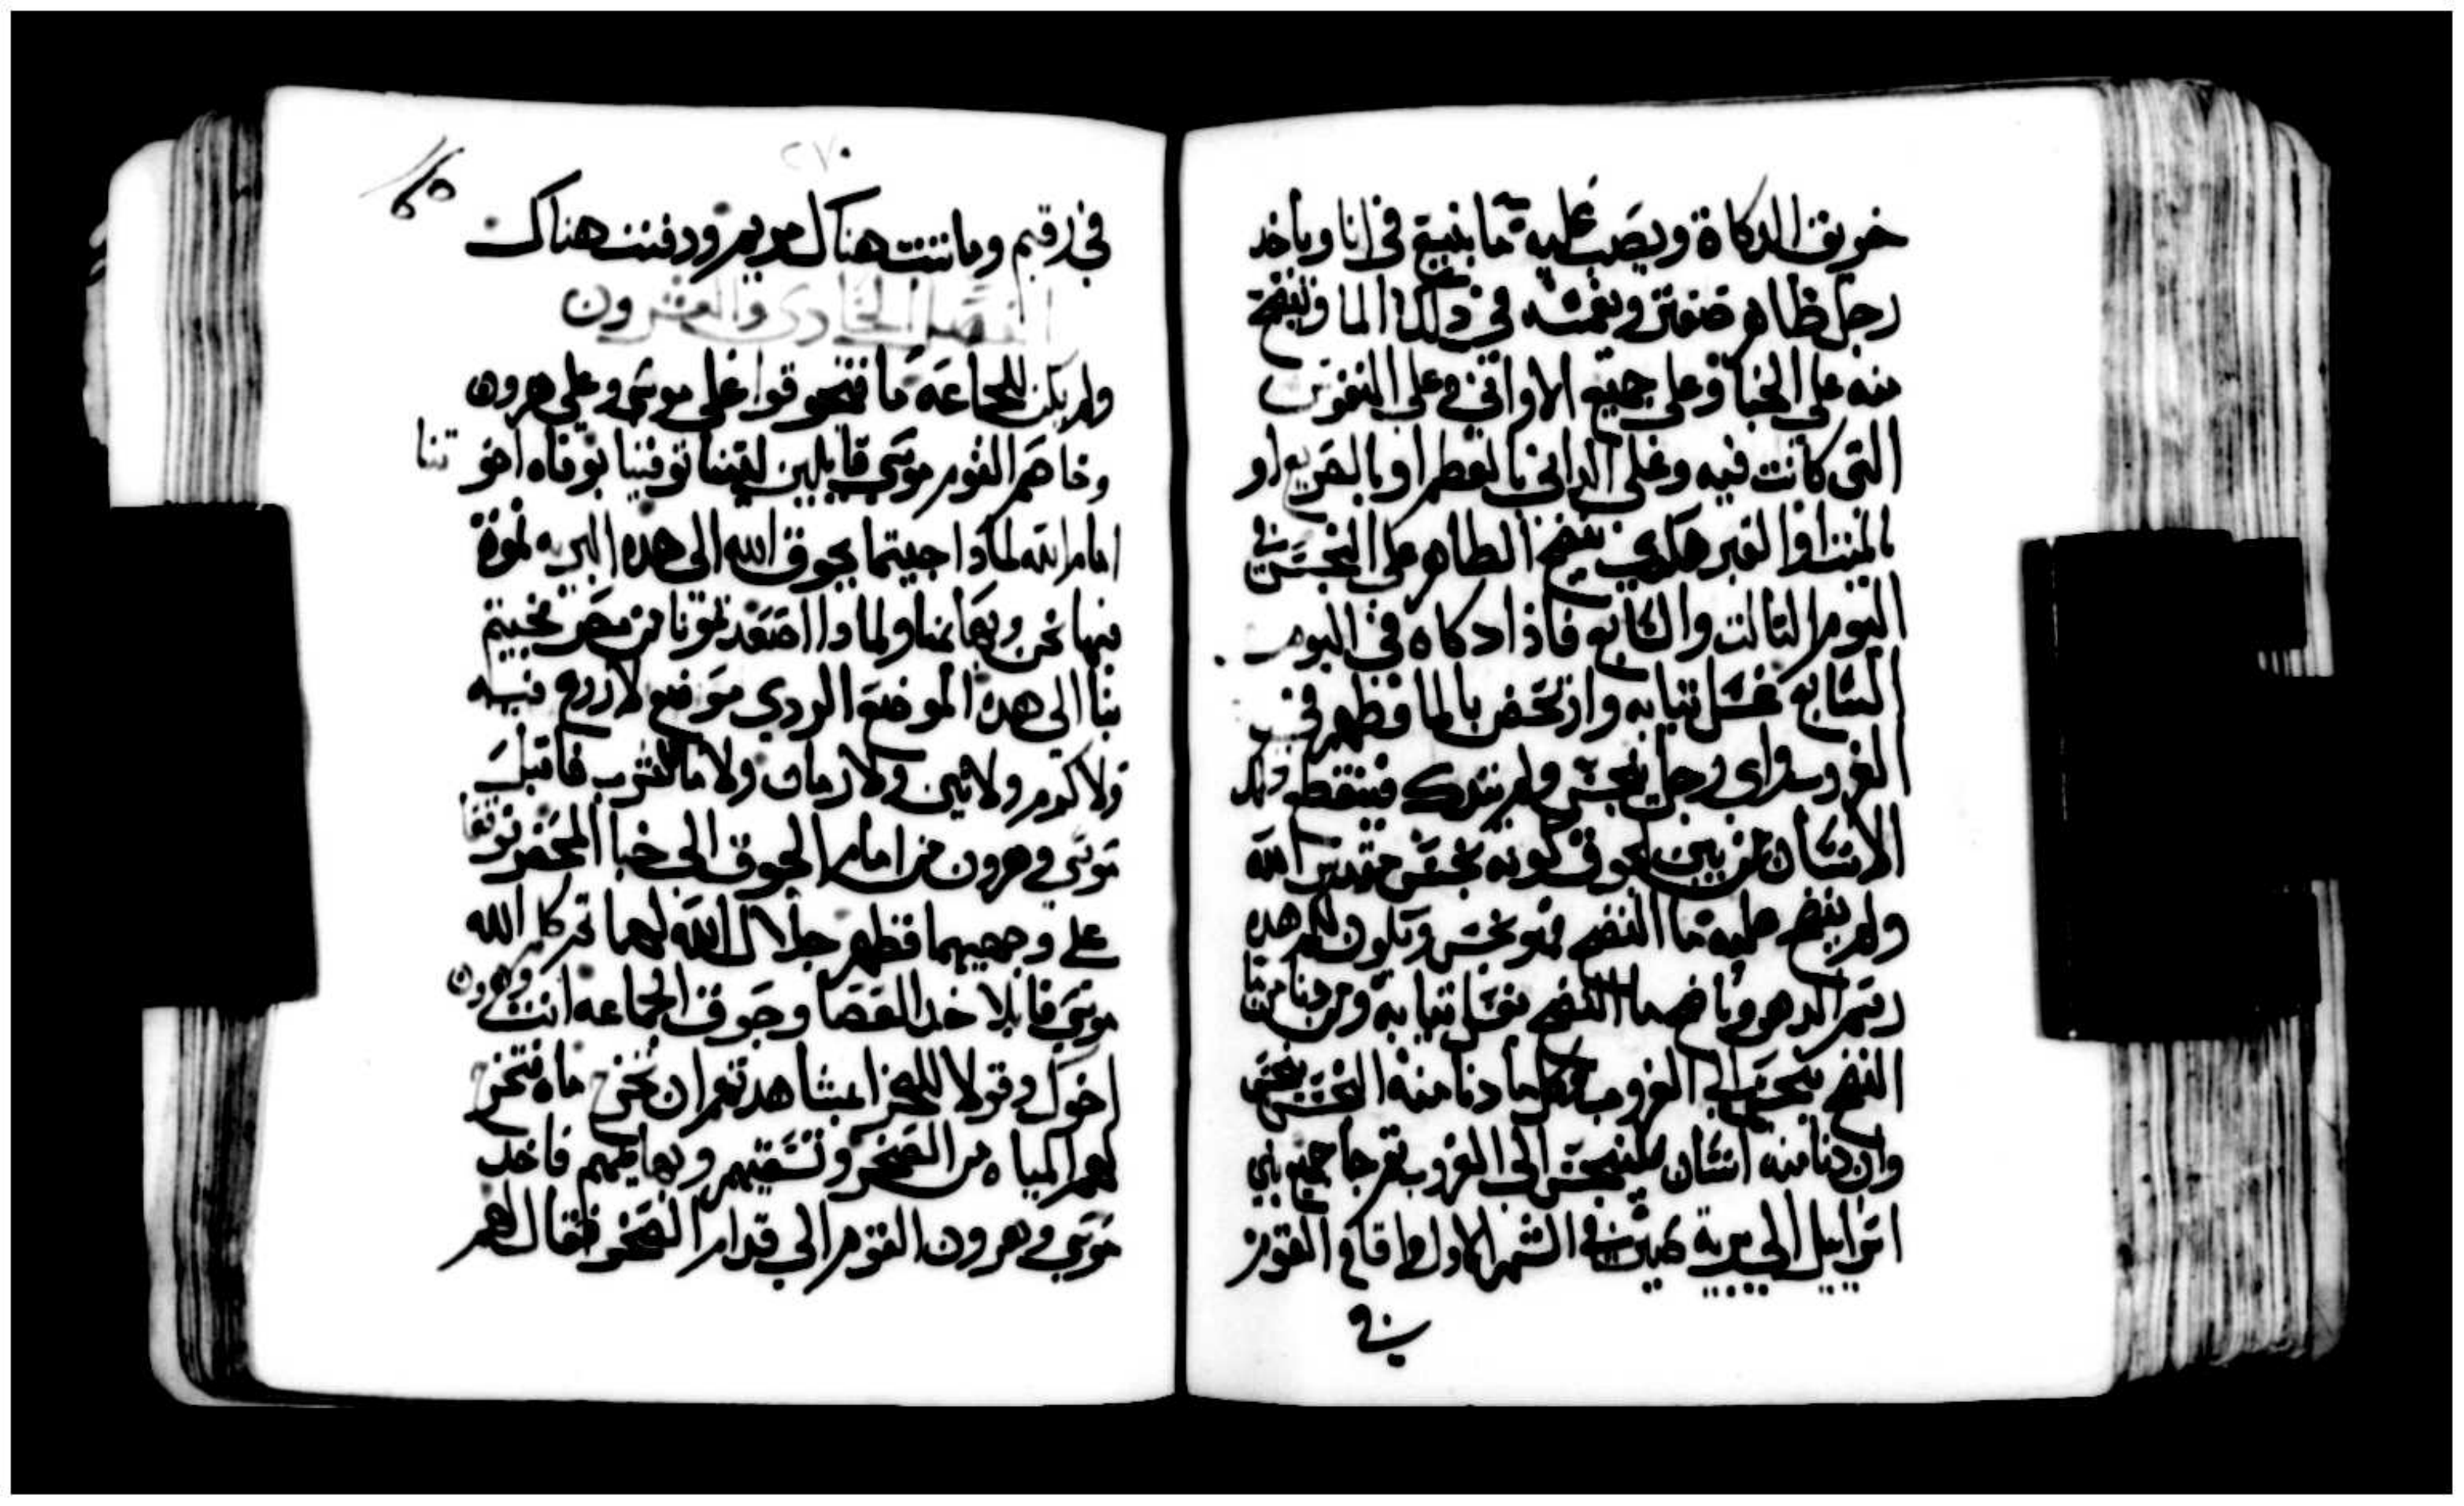 حريق الدكاة ويصب عليه ما ينبع في انا وياخد
رجل طاهر صعتر ويغمسه في ذلك الما وينضح
منه على الخبا وعلى جميع الاواني وعلى النفوس
التي كانت فيه وعلى الداني بالعظم او بالصريع او
بالميت او القبر هكدي ينضح الطاهر على النجس في
اليوم الثالت والسابع فاذا دكاه في اليوم
السابع غسل تيابه وارتحض بالما وطهر في
الغروب واي رجل نجس ولم يتدك فينقطع ذلك
الانسان من بين الجوق كونه نجس مقدس الله
ولم ينضح عليه ما النضح فهو نجس وتكون لكم هده
رسم الدهر وناضح ما النضح يغسل تيابه ومن دنا من ما
النضح ينجس الى الغروب وكلما دنا منه النجس ينجس
وان دنا منه انسان فلينجس الى الغروب ثم جا جميع بني
اسراييل الى برية صين في الشهر الاول واقام القوم
في
٢٧٠
في رقيم وماتت هناك مريم ودفنت هناك
الفصل الحادي والعشرون
ولم يكن للجماعه ما فتجوقوا على موسى وعلى هرون
وخاصم القوم موسى قايلين ليتنا توفينا بوفاه اخوتنا
امام الله لماذا جيتما بجوق الله الى هده البريه لنموت
فيها نحن وبهايمنا ولماذا اصعدتمونا من مصر فجيتم
بنا الى هده الموضع الردي موضع لا زرع فيه
ولا كرم ولا تين ولا رمان ولا ما للشرب فاقبل
موسى وهرون من امام الجوق الى خبا المحضر فوقعا
على وجهيهما فظهر جلال الله لهما تم كلم الله
موسى قايلا خد العصا وجوق الجماعه انت وهرون
اخوك وقولا للصخر اعشاهدتهم ان يخرج ماه فتخرج
لهم المياه من الصخر وتسقيهم وبهايمهم فاخد
موسى وهرون القوم الى قدام الصخر فقال لهم